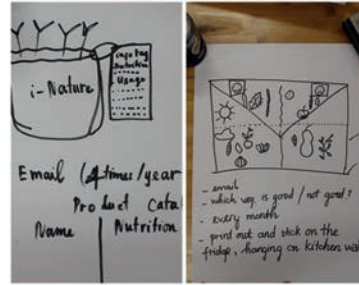 info tag
Nutrition
Usage
i-Nature
Email (4times/year
Product Cata
Name Nutrition
- email
- which veg. is good / not good?
- every month
- print out and stick on the
fridge, hanging on kitchen wa